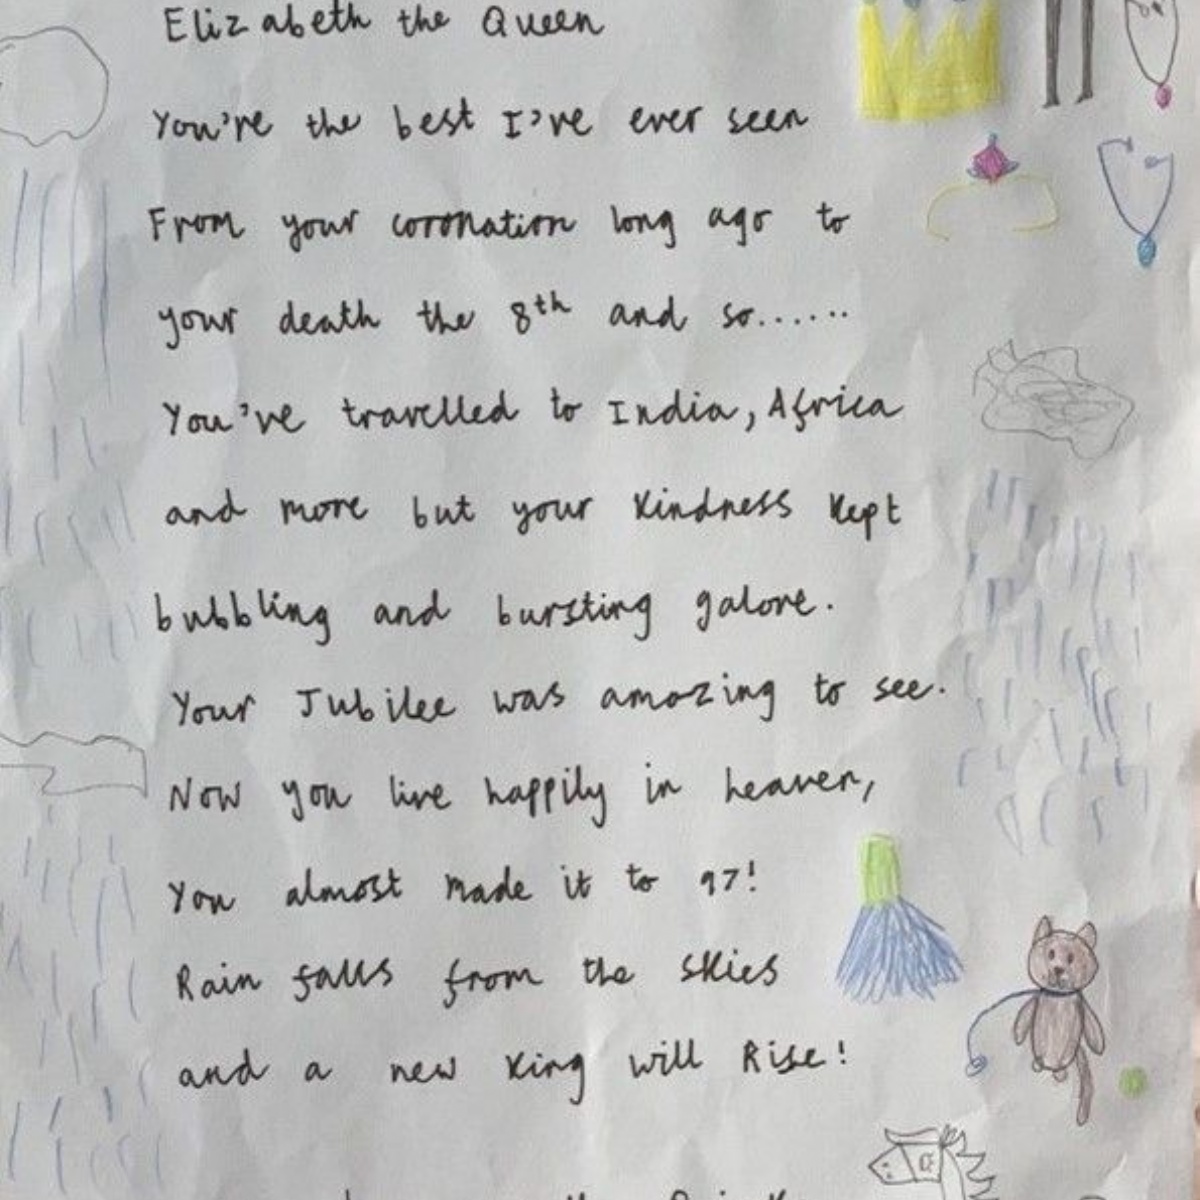 Elizabeth the Queen
You're the best I've ever seen
From your coronation long ago to
your death the 8th and so......
You've travelled to India, Africa
and more but your kindness kept
bubbling and bursting galore.
Your Jubilee was amazing to see.
Now you live happily in heaven,
You almost made it to 97!
Rain falls from the skies
and a new king will Rise!